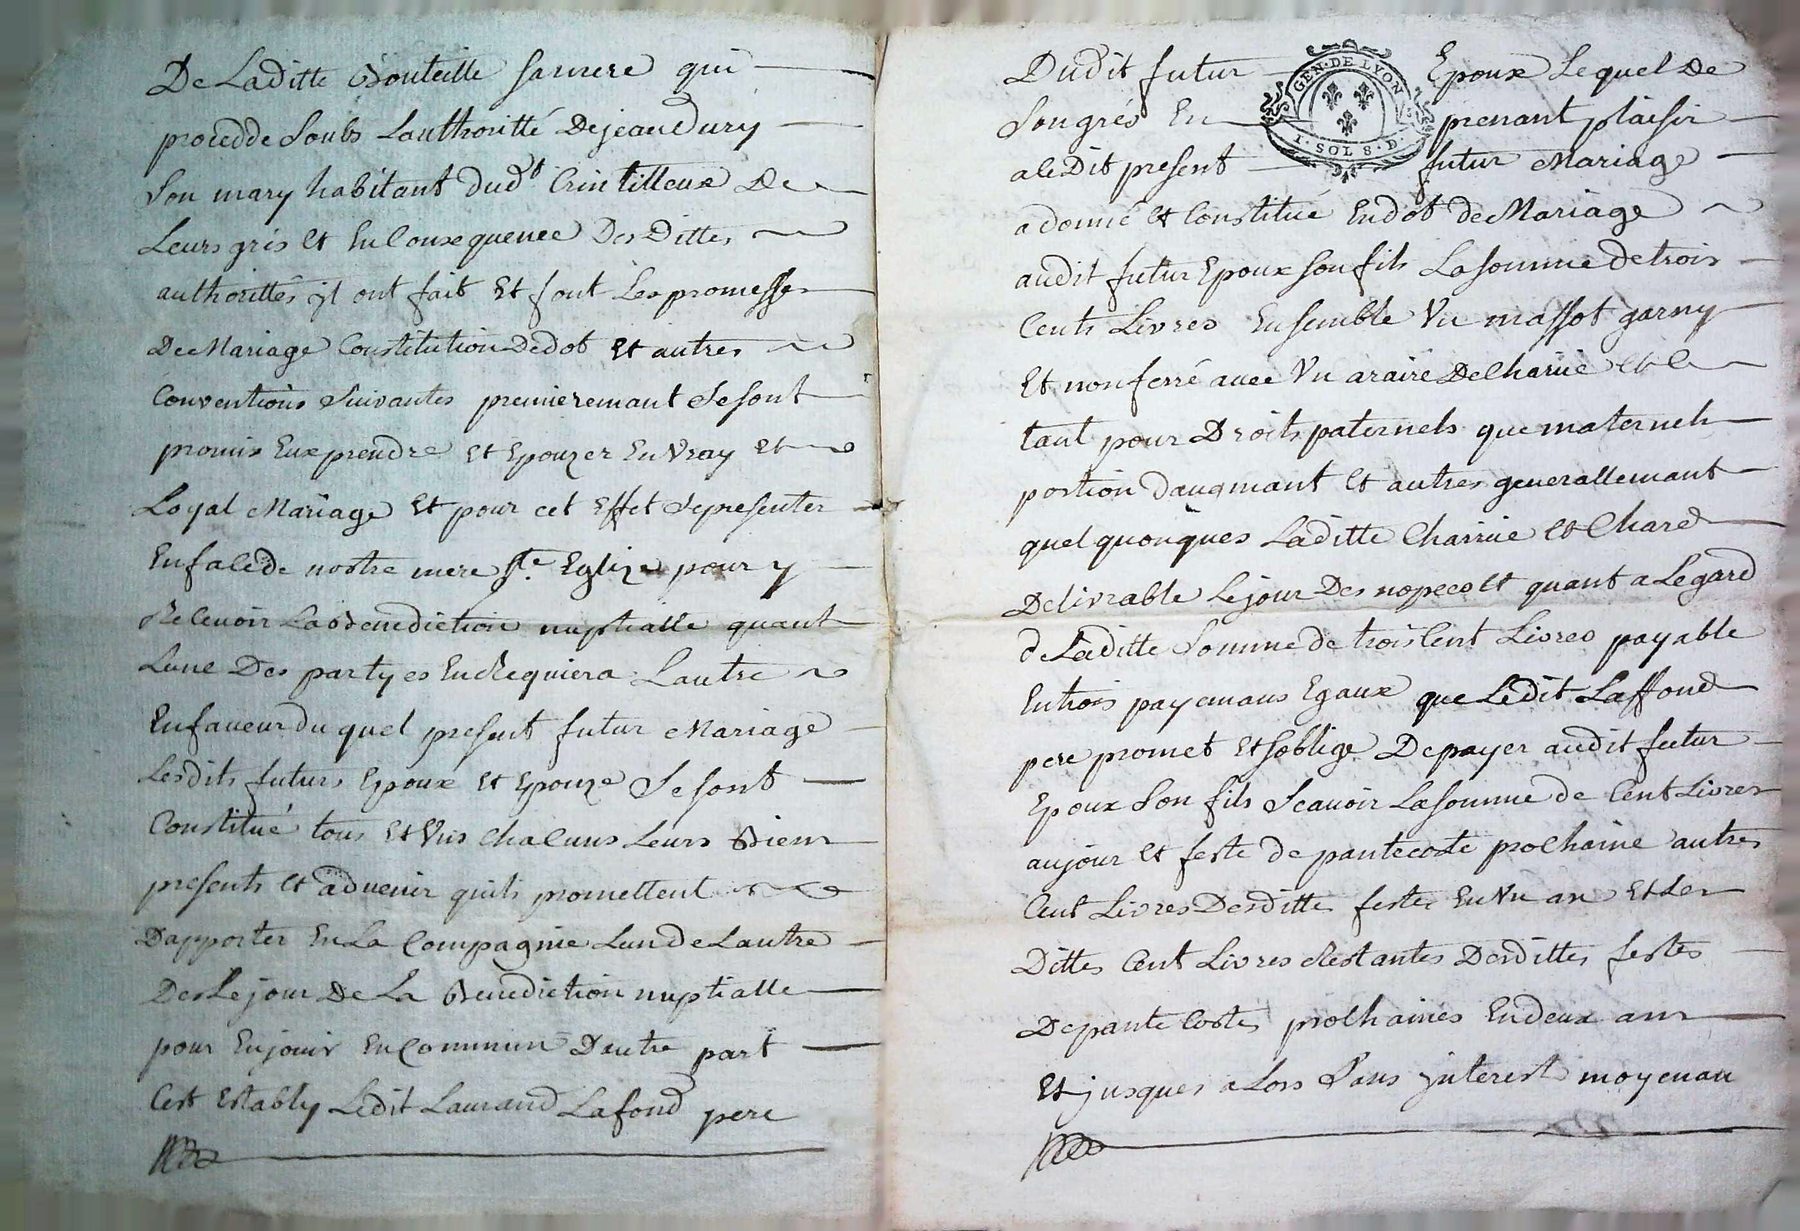 De Laditte Bouteille sa mere qui
procedde soubs Lauthoritté De jean Dury
son mary habitant dudt Crintilleux De
Leurs grés et En Consequence Des Dittes
authorittés il ont fait Et font Les promesses
De Mariage Constitution De dot Et autres
Conventions suivantes premieremant se sont
promis Eux prendre et Epouzer En Vray et
Loyal Mariage Et pour cet Effet se presenter
En face de nostre mere Ste Eglize pour y
Recevoir La Benediction nuptialle quant
Lune Des partyes En Requiera Lautre
En faveur du quel present futur Mariage
Lesdits futurs Epoux et Epouze se sont
Constitué tous et Uns chacuns Leurs Biens
presents et advenir quils promettent
Dapporter En La Compagnie Lun de Lautre
Des Le jour De La Benediction nuptialle
pour En jouir En Commun Dautre part
Cest Estably Ledit Laurand Lafond pere
Dudit futur Epoux Le quel De
son grés En prenant plaisir
a le Dit present futur Mariage
a donné et Constitué En dot de Mariage
audit futur Epoux son fils La somme de trois
Cents Livres Ensemble Un massot garny
Et non ferré avec Un araire De charüe et c
tant pour Droits paternels que maternels
portion daugmant et autres generallemant
quelquonques Laditte Charrüe et Chare
Delivrable Le jour Des nopces et quant a Legard
de Laditte somme de trois Cent Livres payable
En trois payemans Egaux que Ledit Laffond
pere promet et soblige De payer audit futur
Epoux son fils scavoir La somme de Cent Livres
au jour et feste de pantecoste prochaine autres
Cent Livres Desditte festes En Un an Et Les
Dittes Cent Livres Restantes Desdittes festes
De pantecostes prochaines En deux ans
Et jusques a Lors sans ynterest moyenan
GEN·DE LYON
1·SOL 8·D